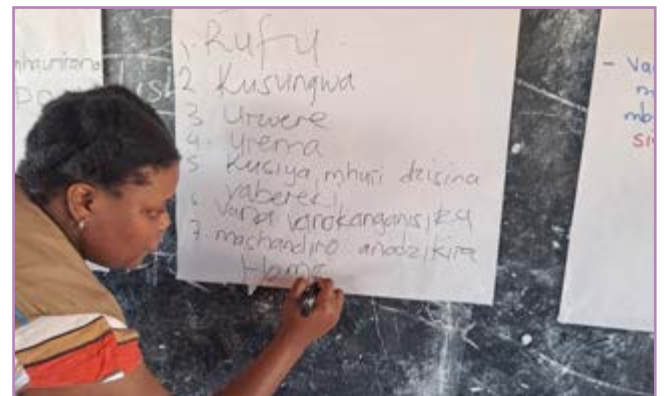 1. Rufu.
2 Kusungwa
3 Urwere
4. Urema
5 Kusiya mhuri dzisina
vabereki
6. Vana vanokanganisika
7. mashandiro anodzikira
Hama
- Va
m
mb
si